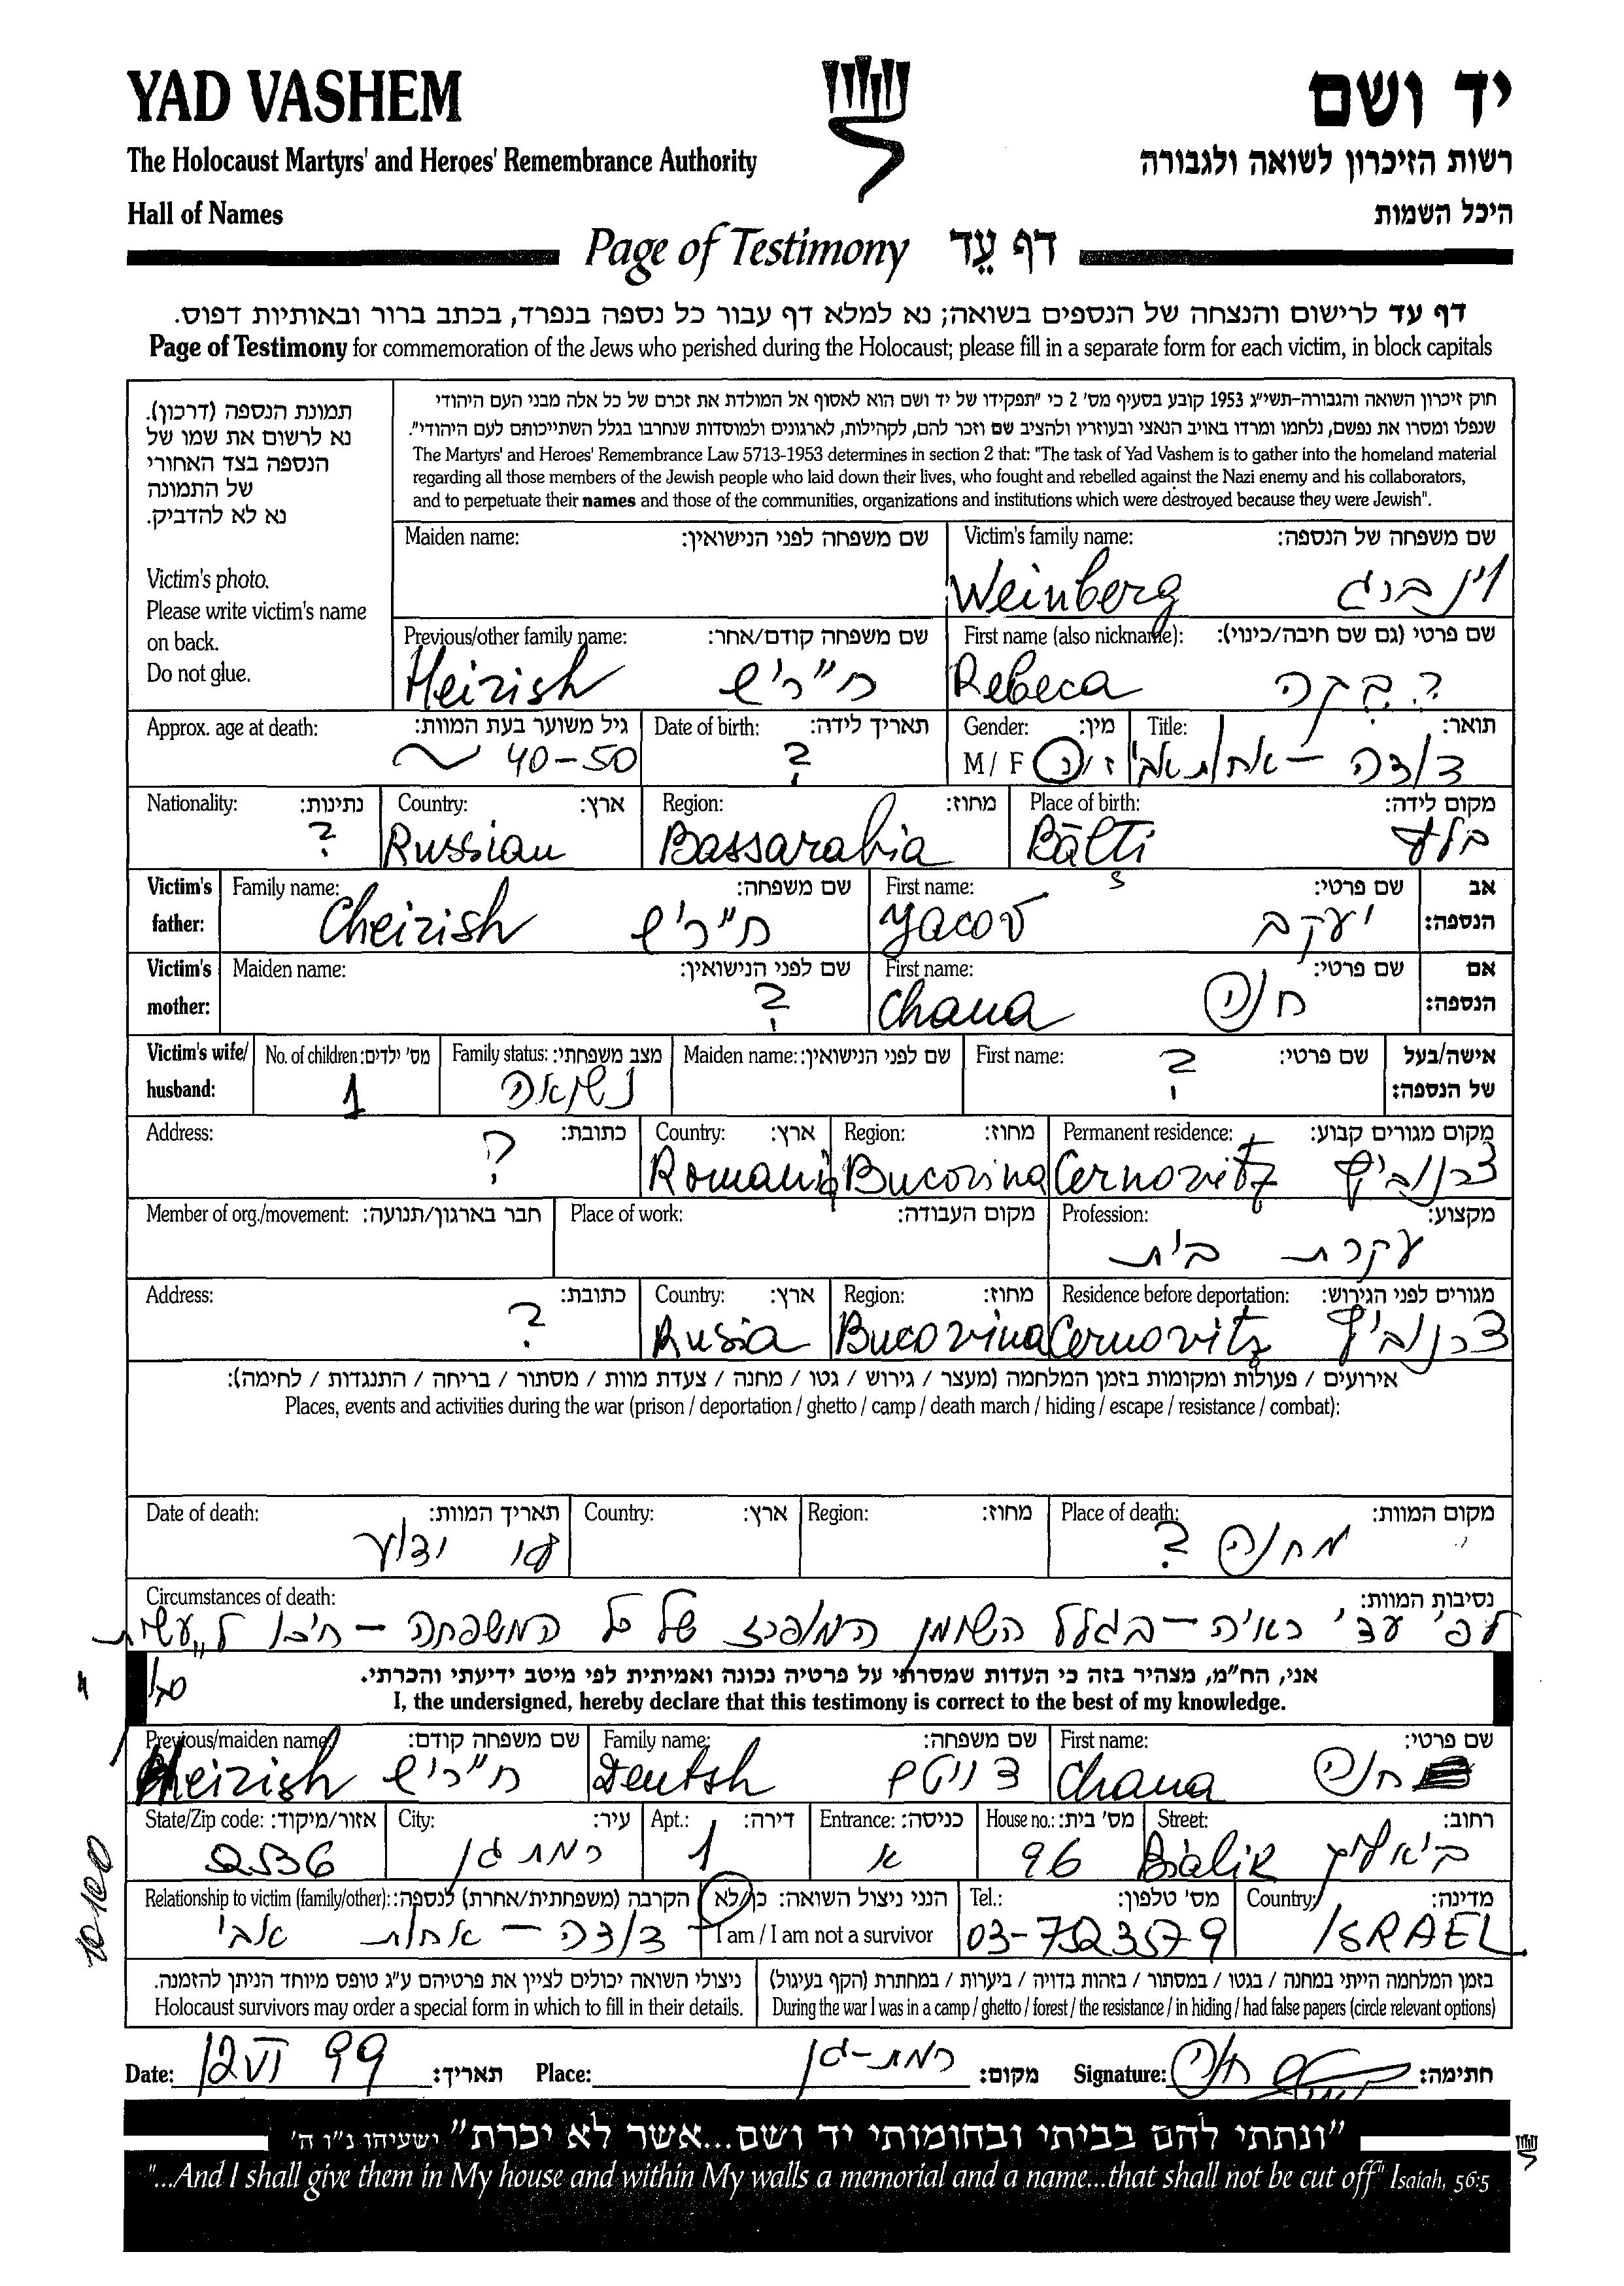 YAD VASHEM
יד ושם
The Holocaust Martyrs' and Heroes' Remembrance Authority
רשות הזיכרון לשואה ולגבורה
Hall of Names
היכל השמות
Page of Testimony דף עֵד
דף עד לרישום והנצחה של הנספים בשואה; נא למלא דף עבור כל נספה בנפרד, בכתב ברור ובאותיות דפוס.
Page of Testimony for commemoration of the Jews who perished during the Holocaust; please fill in a separate form for each victim, in block capitals
תמונת הנספה (דרכון).
נא לרשום את שמו של
הנספה בצד האחורי
של התמונה
נא לא להדביק.
Victim's photo.
Please write victim's name
on back.
Do not glue.
חוק זיכרון השואה והגבורה-תשי״ג 1953 קובע בסעיף מס׳ 2 כי ״תפקידו של יד ושם הוא לאסוף אל המולדת את זכרם של כל אלה מבני העם היהודי
שנפלו ומסרו את נפשם, נלחמו ומרדו באויב הנאצי ובעוזריו ולהציב שם וזכר להם, לקהילות, לארגונים ולמוסדות שנחרבו בגלל השתייכותם לעם היהודי״.
The Martyrs' and Heroes' Remembrance Law 5713-1953 determines in section 2 that: "The task of Yad Vashem is to gather into the homeland material
regarding all those members of the Jewish people who laid down their lives, who fought and rebelled against the Nazi enemy and his collaborators,
and to perpetuate their names and those of the communities, organizations and institutions which were destroyed because they were Jewish".
Maiden name: שם משפחה לפני הנישואין: Victim's family name: שם משפחה של הנספה:
Weinberg
Previous/other family name: שם משפחה קודם/אחר: First name (also nickname): שם פרטי (גם שם חיבה/כינוי):
Heirish ח״ריש Rebeca רבקה
Approx. age at death: גיל משוער בעת המוות: Date of birth: תאריך לידה: Gender: מין: Title: תואר:
~ 40-50 ? M / F דודה - אחות אבי
Nationality: נתינות: Country: ארץ: Region: מחוז: Place of birth: מקום לידה:
? Russian Bassarabia Bălti
Victim's father: Family name: שם משפחה: First name: שם פרטי: אב הנספה:
Cheirish ח״ריש Yacov יעקב
Victim's mother: Maiden name: שם לפני הנישואין: First name: שם פרטי: אם הנספה:
? Chana חנה
Victim's wife/ husband: No. of children: מס׳ ילדים: Family status: מצב משפחתי: Maiden name: שם לפני הנישואין: First name: שם פרטי: אישה/בעל של הנספה:
1 נשואה ?
Address: כתובת: Country: ארץ: Region: מחוז: Permanent residence: מקום מגורים קבוע:
? Romania Bucovina Cernovitz צרנוביץ
Member of org./movement: חבר בארגון/תנועה: Place of work: מקום העבודה: Profession: מקצוע:
עקרת בית
Address: כתובת: Country: ארץ: Region: מחוז: Residence before deportation: מגורים לפני הגירוש:
? Rusia Bucovina Cernovitz צרנוביץ
אירועים / פעולות ומקומות בזמן המלחמה (מעצר / גירוש / גטו / מחנה / צעדת מוות / מסתור / בריחה / התנגדות / לחימה):
Places, events and activities during the war (prison / deportation / ghetto / camp / death march / hiding / escape / resistance / combat):
Date of death: תאריך המוות: Country: ארץ: Region: מחוז: Place of death: מקום המוות:
לא ידוע מחנה ?
Circumstances of death: נסיבות המוות:
לפי עדי ראיה - בגלל השומן המופרז של כל המשפחה -
אני, הח״מ, מצהיר בזה כי העדות שמסרתי על פרטיה נכונה ואמיתית לפי מיטב ידיעתי והכרתי.
I, the undersigned, hereby declare that this testimony is correct to the best of my knowledge.
Previous/maiden name: שם משפחה קודם: Family name: שם משפחה: First name: שם פרטי:
Heirish ח״ריש Deutsh דויטש Chana חנה
State/Zip code: אזור/מיקוד: City: עיר: Apt.: דירה: Entrance: כניסה: House no.: מס׳ בית: Street: רחוב:
רמת גן 1 א 96 Bialik ביאליק
Relationship to victim (family/other): הקרבה (משפחתית/אחרת) לנספה: הנני ניצול השואה: כן/לא Tel.: מס׳ טלפון: Country: מדינה:
דודה - אחות אבי I am / I am not a survivor 03-7523579 ISRAEL
10100
ניצולי השואה יכולים לציין את פרטיהם ע״ג טופס מיוחד הניתן להזמנה. בזמן המלחמה הייתי במחנה / בגטו / במסתור / בזהות בדויה / ביערות / במחתרת (הקף בעיגול)
Holocaust survivors may order a special form in which to fill in their details. During the war I was in a camp / ghetto / forest / the resistance / in hiding / had false papers (circle relevant options)
Date: 12 VI 99 תאריך: Place: רמת-גן מקום: Signature: חנה חתימה:
״ונתתי להם בביתי ובחומותי יד ושם...אשר לא יכרת״ ישעיהו נ״ו ה׳
"...And I shall give them in My house and within My walls a memorial and a name...that shall not be cut off" Isaiah, 56:5